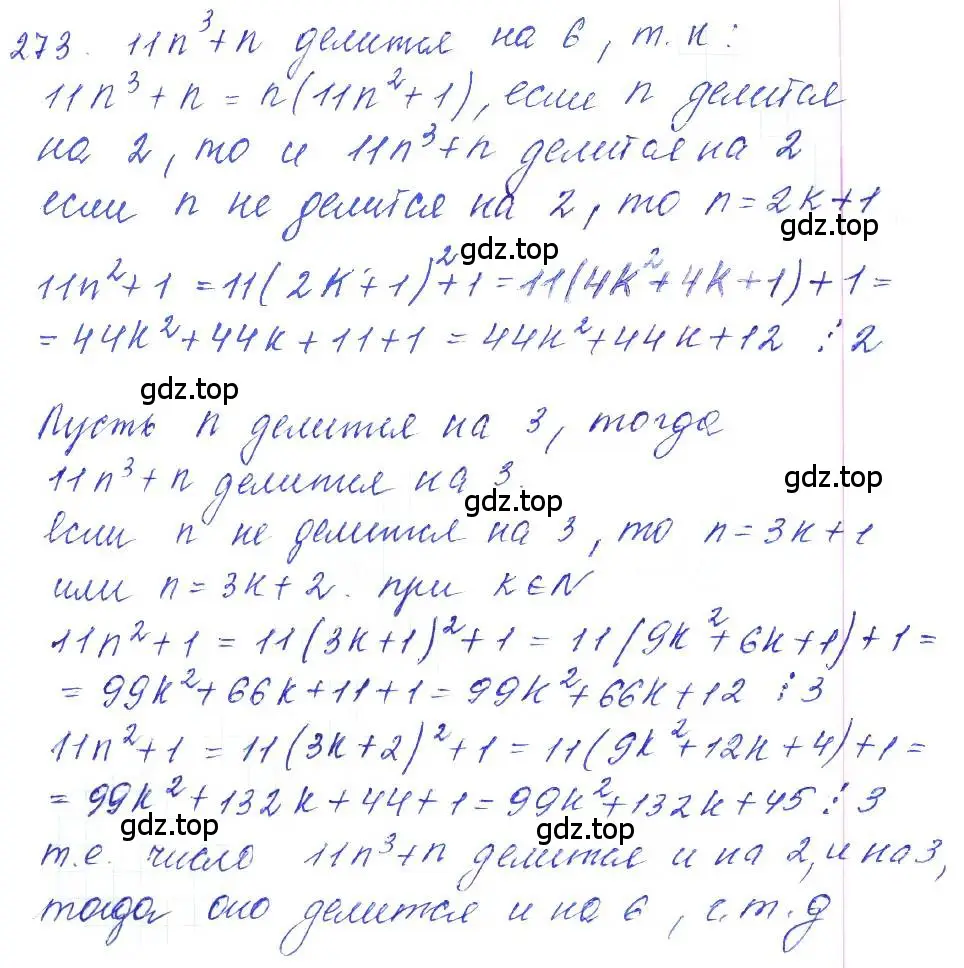 273. 11n³+n делится на 6, т.к:
11n³+n = n(11n²+1), если n делится
на 2, то и 11n³+n делится на 2
если n не делится на 2, то n=2k+1
gdz.top
gdz.top
11n²+1 = 11(2k+1)²+1 = 11(4k²+4k+1)+1 =
= 44k²+44k+11+1 = 44k²+44k+12 ⋮ 2
gdz.top
Пусть n делится на 3, тогда
11n³+n делится на 3.
gdz.top
gdz.top
если n не делится на 3, то n=3k+1
или n=3k+2. при k∈N
11n²+1 = 11(3k+1)²+1 = 11(9k²+6k+1)+1 =
= 99k²+66k+11+1 = 99k²+66k+12 ⋮ 3
11n²+1 = 11(3k+2)²+1 = 11(9k²+12k+4)+1 =
= 99k²+132k+44+1 = 99k²+132k+45 ⋮ 3
gdz.top
gdz.top
т.е. число 11n³+n делится и на 2, и на 3,
тогда оно делится и на 6, с.т.д